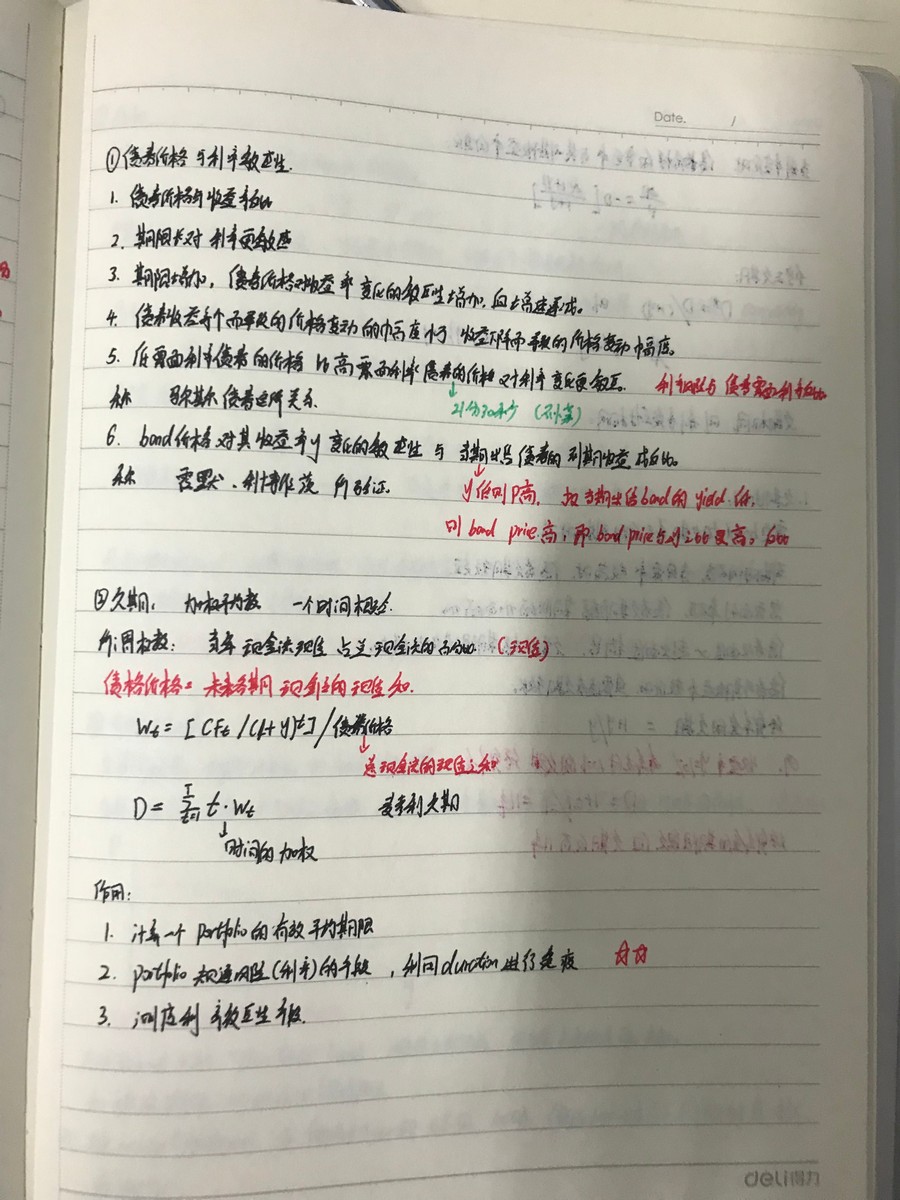 Date. /
① 债券价格与利率敏感性.
1. 债券价格与收益率成反比
2. 期限长对利率更敏感
3. 期限增加，债券价格对收益率变化的敏感性增加，但增速递减。
4. 债券收益率个而导致的价格变动的幅度小于收益下降而导致的价格变动幅度。
5. 低票面利率债券的价格比高票面利率债券的价格对利率变化更敏感。 利率风险与债券票面利率成反比。
马尔基尔债券定价关系.
6. bond价格对其收益率y变化的敏感性与当期出售债券的到期收益成反比。
霍默、利博维茨 所验证.
y低则P高，
当期出售bond的yield低，
则bond price高，
② 久期： 加权平均数 一个时间概念.
所用权数： 当年现金流现值占总现金流的百分比.（现值）
债格价格= 未来各期间现金流的现值和.
Wt = [CFt /(1+y)^t] / 债券价格
↓ 总现金流的现值之和
D = Σ(t=1→T) t·Wt 麦考利久期
↓ 时间的加权
作用：
1. 计算一个portfolio的有效平均期限
2. portfolio规避风险(利率)的手段，利用duration进行免疫 ☆☆
3. 测度利率敏感性手段.
deli得力